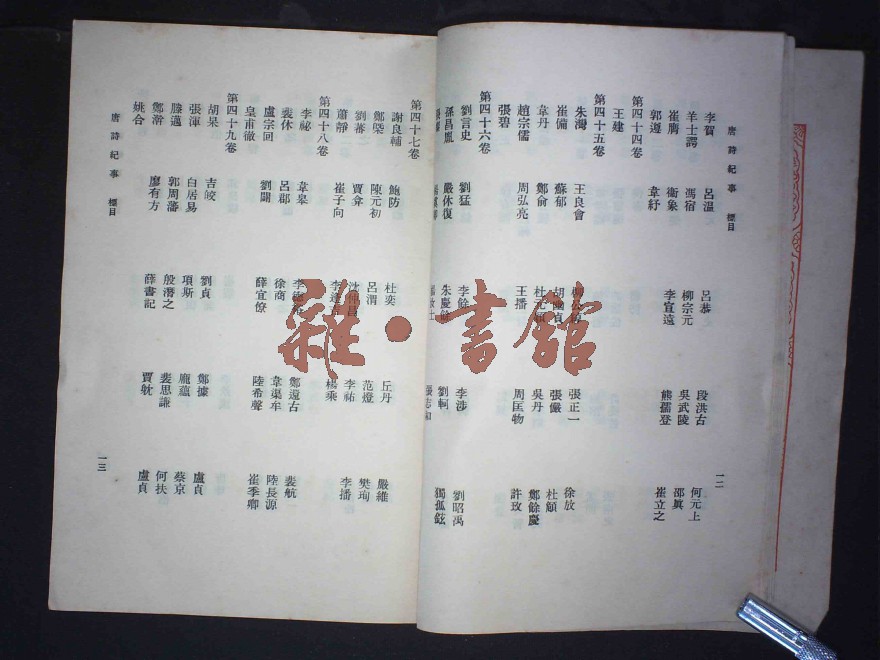 唐詩紀事 標目
李賀 呂溫 呂恭 段洪古 何元上
羊士諤 馮宿 柳宗元 吳武陵 邵眞
崔膺 衛象 李宣遠 熊孺登 崔立之
郭遵 韋紓
第四十四卷
王建
第四十五卷
朱灣 王良會 張正一 徐放
崔備 蘇郁 張儼 杜頠
韋丹 鄭俞 吳丹 鄭餘慶
趙宗儒 周弘亮 王播 周匡物 許玫
張碧
第四十六卷
劉言史 劉猛 李餘 李涉 劉昭禹
孫昌胤 嚴休復 朱慶餘 劉軻 獨孤鉉
一二
第四十七卷
謝良輔 鮑防 杜奕 丘丹 嚴維
鄭槩 陳元初 呂渭 范燈 樊珣
劉蕃 賈弇 沈仲昌 李祐 李播
蕭靜 崔子向 楊乘
第四十八卷
李祕 韋皋 鄭還古 裴航
裴休 呂郡 徐商 韋渠牟 陸長源
盧宗回 劉闢 薛宜僚 陸希聲 崔季卿
皇甫徹
第四十九卷
胡杲 吉皎 劉貞 鄭據 盧貞
張渾 白居易 項斯 龐蘊 蔡京
滕邁 郭周藩 殷潛之 裴思謙 何扶
鄭澣 廖有方 薛書記 賈躭 盧貞
姚合
唐詩紀事 標目
一三
雜·書館